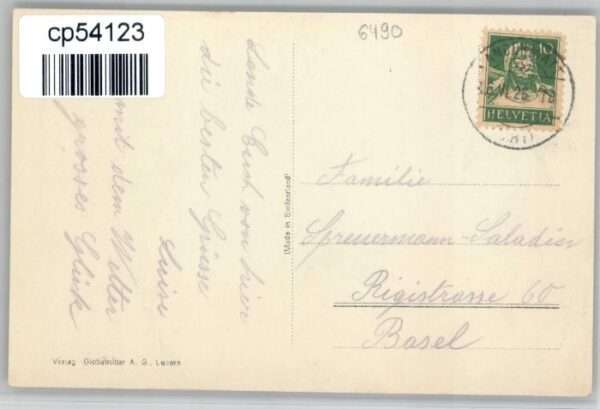 cp54123
6490
10
HELVETIA
Sende Euch von hier
die besten Grüsse
Luise
mit dem Wetter
grosses Glück
(Made in Switzerland)
Familie
Spreuermann-Saladin
Rigistrasse 60
Basel
Verlag Globetrotter A. G., Luzern